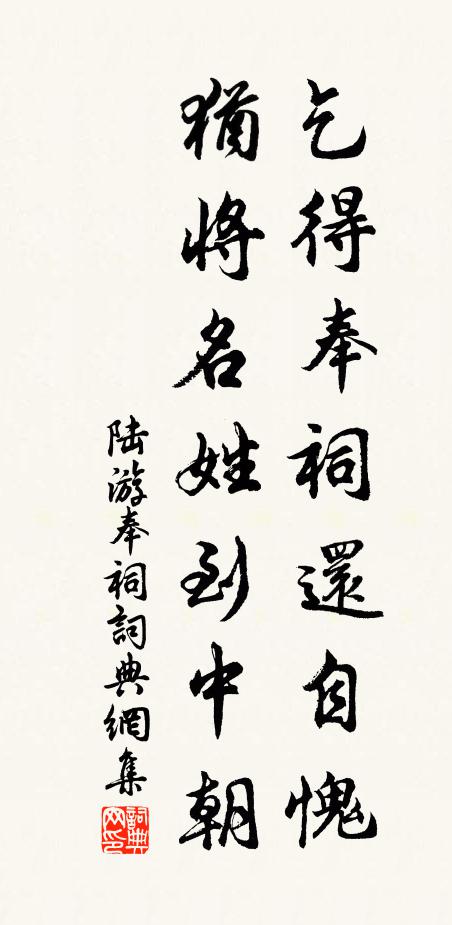 乞得奉祠還自愧
猶將名姓到中朝
陸游奉祠詞典網集
詞典網印